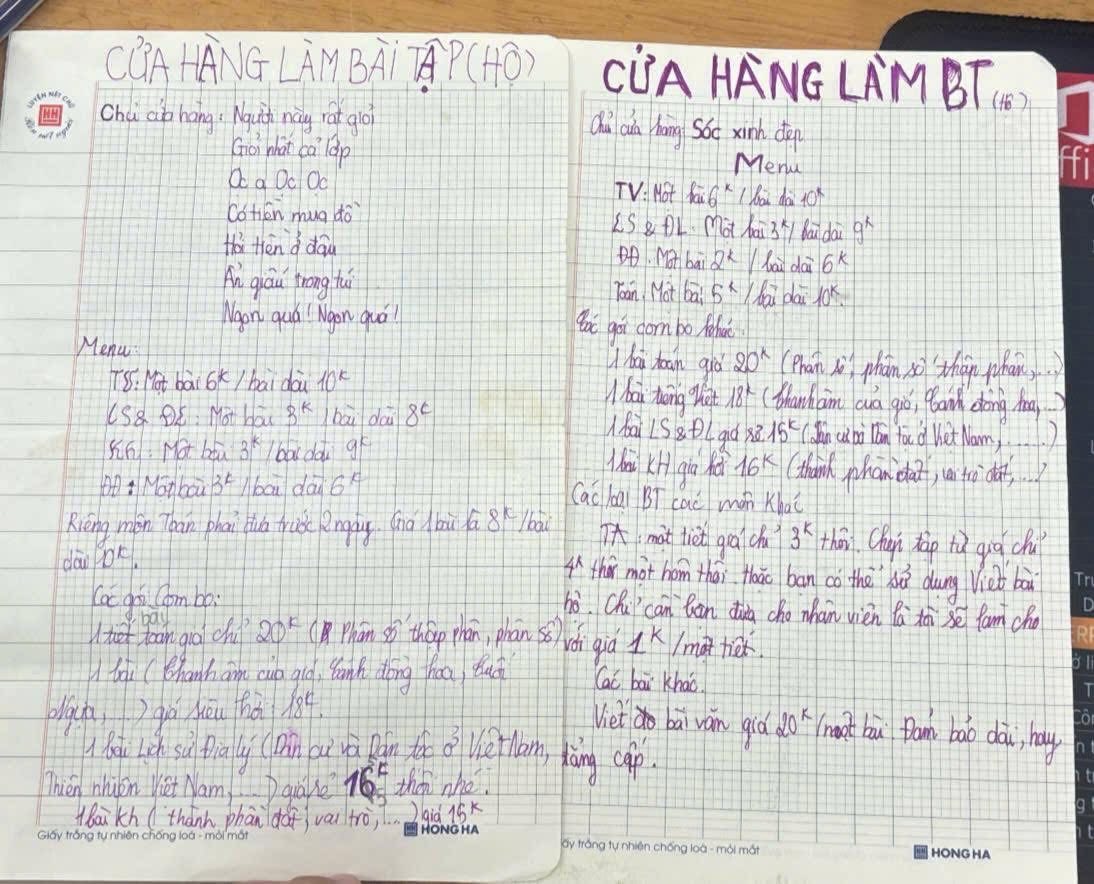 CỬA HÀNG LÀM BÀI TẬP (HỘ)
Chủ cửa hàng: Người này rất giỏi
Giỏi nhất cả lớp
Oc a Oc Oc
Có tiền mua đồ
Hỏi tiền ở đâu
Ẩn giấu trong túi
Ngon quá! Ngon quá!
Menu:
Một bài 6k / bài dài 10k
LS & ĐL: Một bài 3k / bài dài 8k
Một bài 3k / bài dài 9k
ĐĐ: Một bài 3k / bài dài 6k
Riêng môn Toán phải đưa trước 2 ngày. Giá 1 bài là 8k / bài
dài 10k.
Các gói Combo:
bày
1 tiết toán giá chỉ 20k (Phân số thập phân, phân số)
1 bài (Thanh âm của gió, Cánh đồng hoa, tuổi
Ngựa, ...) giá siêu hời 18k.
1 bài Lịch sử Địa lý (Dân cư và Dân tộc ở Việt Nam,
Thiên nhiên Việt Nam, ...) giá rẻ 16k thôi nhé.
1 bài kh (thành phần đất, vai trò, ...) giá 15k
Giấy trắng tự nhiên chống loá - mỏi mắt
HONG HA
CỬA HÀNG LÀM BT (Hộ)
Chủ cửa hàng Sóc xinh đẹp
Menu
TV: Một bài 6k / bài dài 10k
LS & ĐL. Một bài 3k / bài dài 9k
ĐĐ. Một bài 2k / bài dài 6k
Toán. Một bài 5k / bài dài 10k.
Các gói combo khác.
1 bài toán giá 20k (Phân số, phân số thập phân, ...)
1 bài tiếng Việt 18k (thanh âm của gió, Cánh đồng hoa, ...)
1 bài LS & ĐL giá rẻ 15k (Dân cư và Dân tộc ở Việt Nam, .....)
1 bài KH giá hời 16k (thành phần đất, vai trò đất, ...)
Các loại BT các môn khác
TA: một tiết giá chỉ 3k thôi. Chép tập từ giá chỉ
4k thôi một hôm thôi. Hoặc bạn có thể sử dụng Viết bài
hộ. Chỉ cần bạn đưa cho nhân viên là tôi sẽ làm cho
với giá 1k / một tiết.
Các bài khác.
Viết bài văn giá 20k / một bài. Đảm bảo dài, hay,
đẳng cấp.
ấy trắng tự nhiên chống loá - mỏi mắt
HONG HA